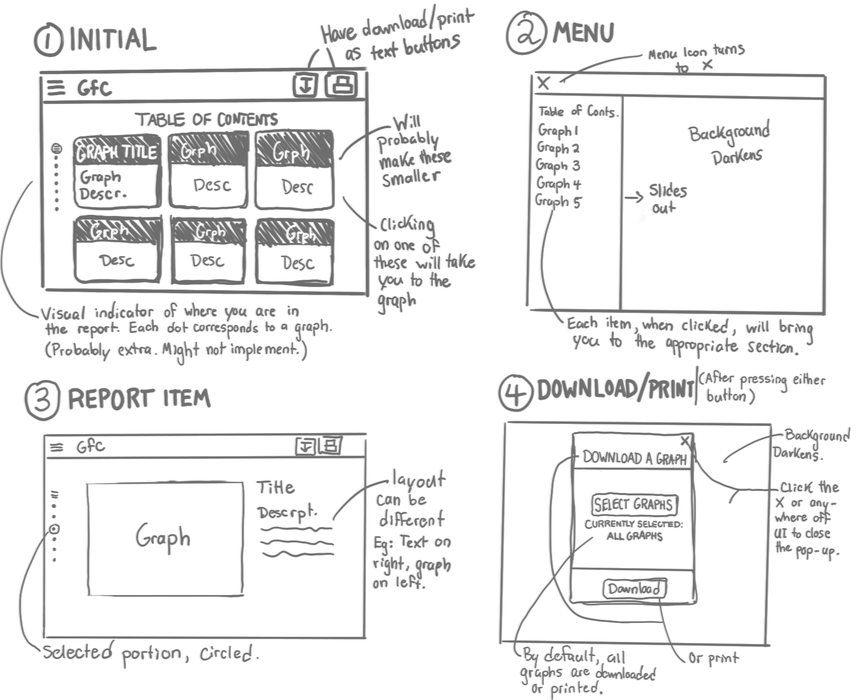 1 INITIAL
Have download/print
as text buttons
GfC
TABLE OF CONTENTS
GRAPH TITLE
Graph
Descr.
Grph
Desc
Grph
Desc
Grph
Desc
Grph
Desc
Grph
Desc
Will
probably
make these
smaller
Clicking
on one of
these will take
you to the
graph
Visual indicator of where you are in
the report. Each dot corresponds to a graph.
(Probably extra. Might not implement.)
2 MENU
Menu Icon turns
to X
X
Table of Conts.
Graph 1
Graph 2
Graph 3
Graph 4
Graph 5
Background
Darkens
→ Slides
out
Each item, when clicked, will bring
you to the appropriate section.
3 REPORT ITEM
GfC
Graph
Title
Descrpt.
layout
can be
different
Eg: Text on
right, graph
on left.
Selected portion, circled.
4 DOWNLOAD/PRINT (After pressing either
button)
X
DOWNLOAD A GRAPH
SELECT GRAPHS
CURRENTLY SELECTED:
ALL GRAPHS
Download
Background
Darkens.
Click the
X or any-
where off
UI to close
the pop-up.
By default, all
graphs are downloaded
or printed.
Or print